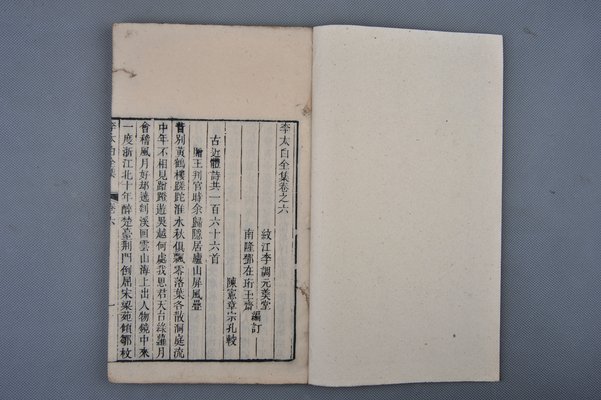 李太白全集卷之六
綿江李調元羹堂
南隆鄧在珩玉齋
編訂
陳憲章宗孔較
古近體詩共一百六十六首
贈王判官時余歸隱居廬山屏風疊
昔別黃鶴樓蹉跎淮水秋俱飄零落葉各散洞庭流
中年不相見蹭蹬遊吳越何處我思君天台綠蘿月
會稽風月好却遶剡溪回雲山海上出人物鏡中來
一度浙江北十年醉楚臺荊門倒屈宋梁苑傾鄒枚
李太白全集
卷六
一